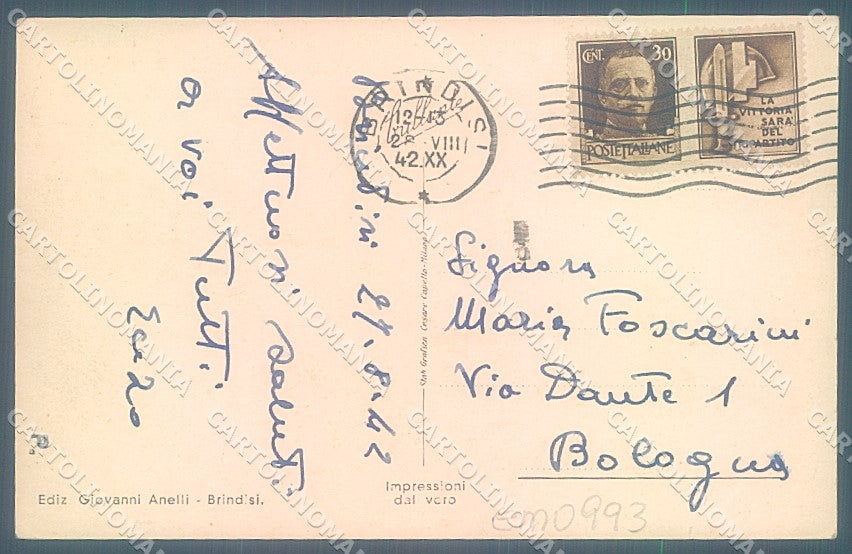 Brindisi 27.8.42
Affettuosi saluti
a voi Tutti
Enzo
BRINDISI
12-13
28 VIII
42.XX
CENT. 30
POSTE ITALIANE
LA
VITTORIA
SARÀ
DEL
TRIPARTITO
Signora
Maria Foscarini
Via Dante 1
Bologna
Stab. Grafico Cesare Capello-Milano
P.
Ediz Giovanni Anelli - Brindisi.
Impressioni
dal vero
0993
CARTOLINOMANIA